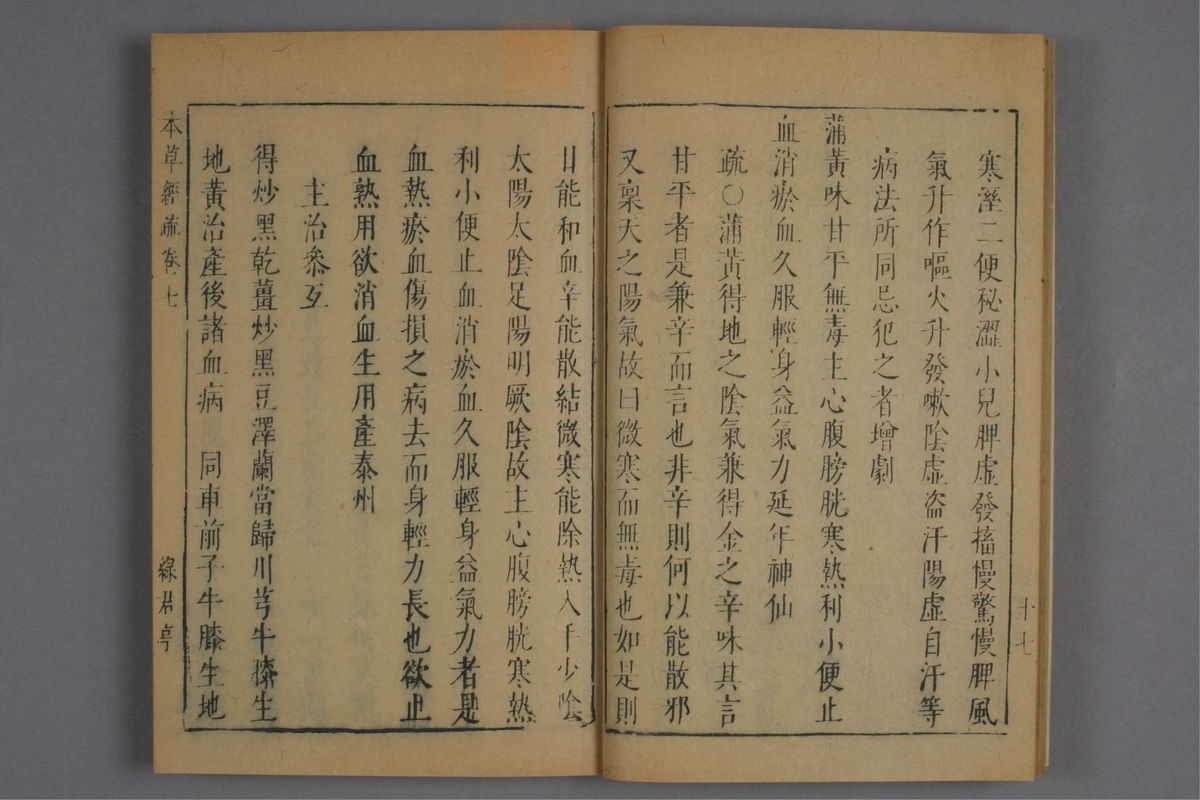 寒溼二便秘澀小兒脾虛發搐慢驚慢脾風
氣升作嘔火升發嗽陰虛盜汗陽虛自汗等
病法所同忌犯之者增劇
蒲黃味甘平無毒主心腹膀胱寒熱利小便止
血消瘀血久服輕身益氣力延年神仙
疏○蒲黃得地之陰氣兼得金之辛味其言
甘平者是兼辛而言也非辛則何以能散邪
又稟天之陽氣故曰微寒而無毒也如是則
十七
甘能和血辛能散結微寒能除熱入手少陰
太陽太陰足陽明厥陰故主心腹膀胱寒熱
利小便止血消瘀血久服輕身益氣力者是
血熱瘀血傷損之病去而身輕力長也欲止
血熟用欲消血生用產泰州
主治叅互
得炒黑乾薑炒黑豆澤蘭當歸川芎牛膝生
地黃治產後諸血病 同車前子牛膝生地
本草經疏卷七
綠君亭